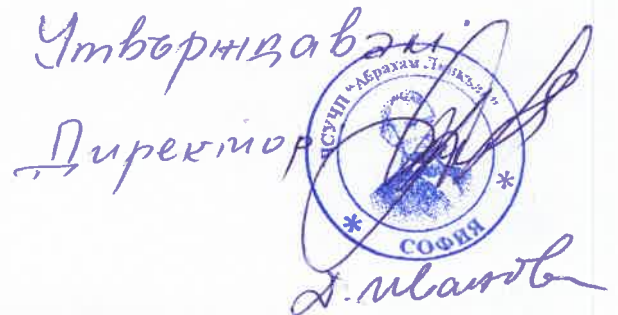 Утвърждавам:
Директор
ЧСУЧП "Абрахам Линкълн"
СОФИЯ
Д. Иванова